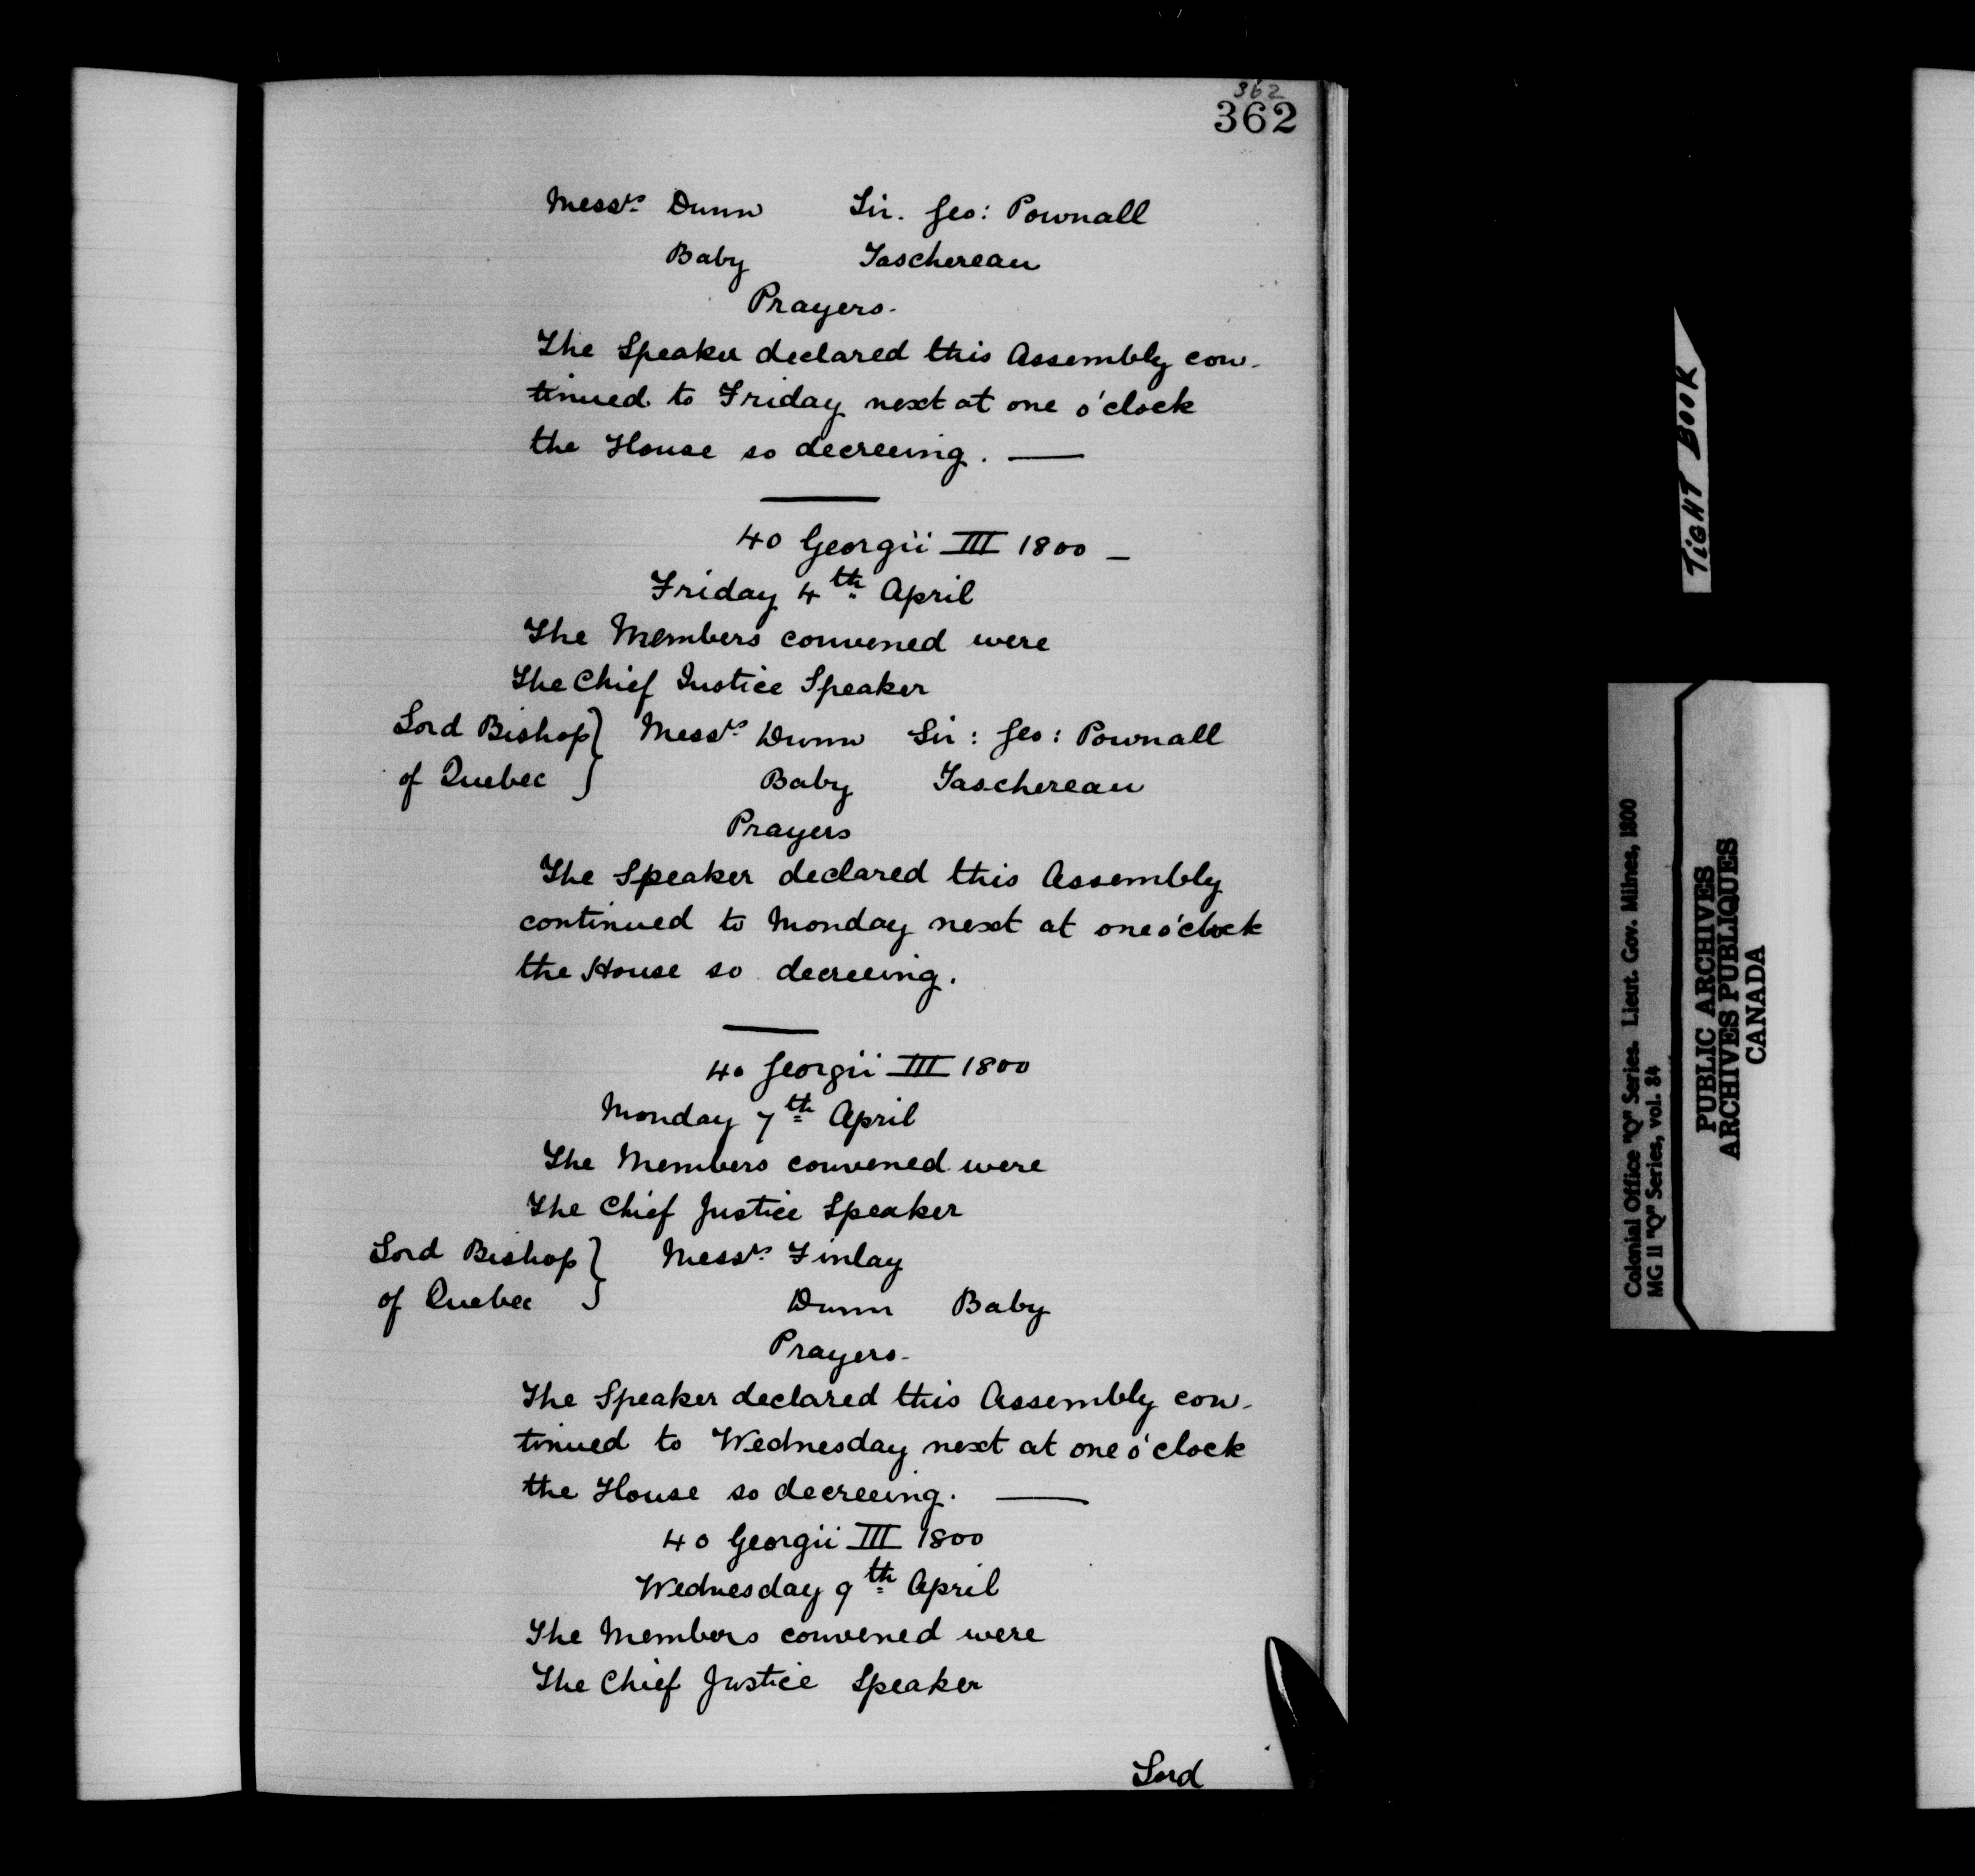 362
362
Messrs Dunn Sir. Geo: Pownall
Baby Taschereau
Prayers.
The Speaker declared this Assembly con-
tinued to Friday next at one o'clock
the House so decreeing. —
40 Georgii III 1800 —
Friday 4th April
The Members convened were
The Chief Justice Speaker
Lord Bishop } Messrs Dunn Sir: Geo: Pownall
of Quebec } Baby Taschereau
Prayers
The Speaker declared this Assembly
continued to Monday next at one o'clock
the House so decreeing.
40 Georgii III 1800
Monday 7th April
The Members convened were
The Chief Justice Speaker
Lord Bishop } Messrs Finlay
of Quebec } Dunn Baby
Prayers-
The Speaker declared this Assembly con-
tinued to Wednesday next at one o'clock
the House so decreeing. —
40 Georgii III 1800
Wednesday 9th April
The Members convened were
The Chief Justice Speaker
Lord
TIGHT BOOK
Colonial Office "Q" Series. Lieut. Gov. Milnes, 1800
MG 11 "Q" Series, vol. 84
PUBLIC ARCHIVES
ARCHIVES PUBLIQUES
CANADA